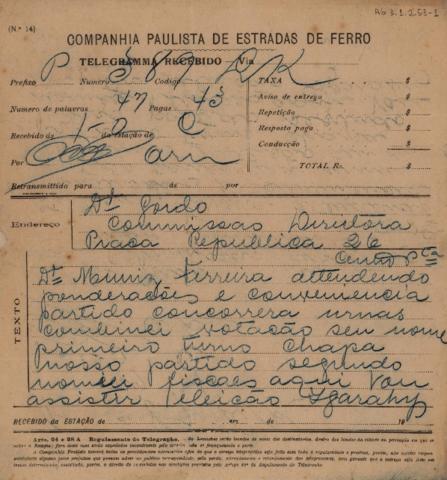 Ag 3.1.2.53-1
(N.º 14)
COMPANHIA PAULISTA DE ESTRADAS DE FERRO
TELEGRAMMA RECEBIDO Via
Prefixo P Numero Codigo DK
Numero de palavras 47 Pagas 43
Recebido da estação de C
Por
Retransmittido para de por
TAXA $
Aviso de entrega $
Repetição $
Resposta paga $
Conducção $
TOTAL Rs. $
Endereço
Dr Gordo
Commissao Directora
Praca Republica 26
Centro Pta
TEXTO
Dr Muniz Ferreira attendendo
ponderações e conveniencia
partido concorrera urnas
combinei votação seu nome
primeiro turno chapa
nosso partido segundo
nomeei fiscaes aqui Vou
assistir eleição
RECEBIDO DA ESTAÇÃO DE em de de 19
Arts. 24 e 28 A Regulamento do Telegrapho.